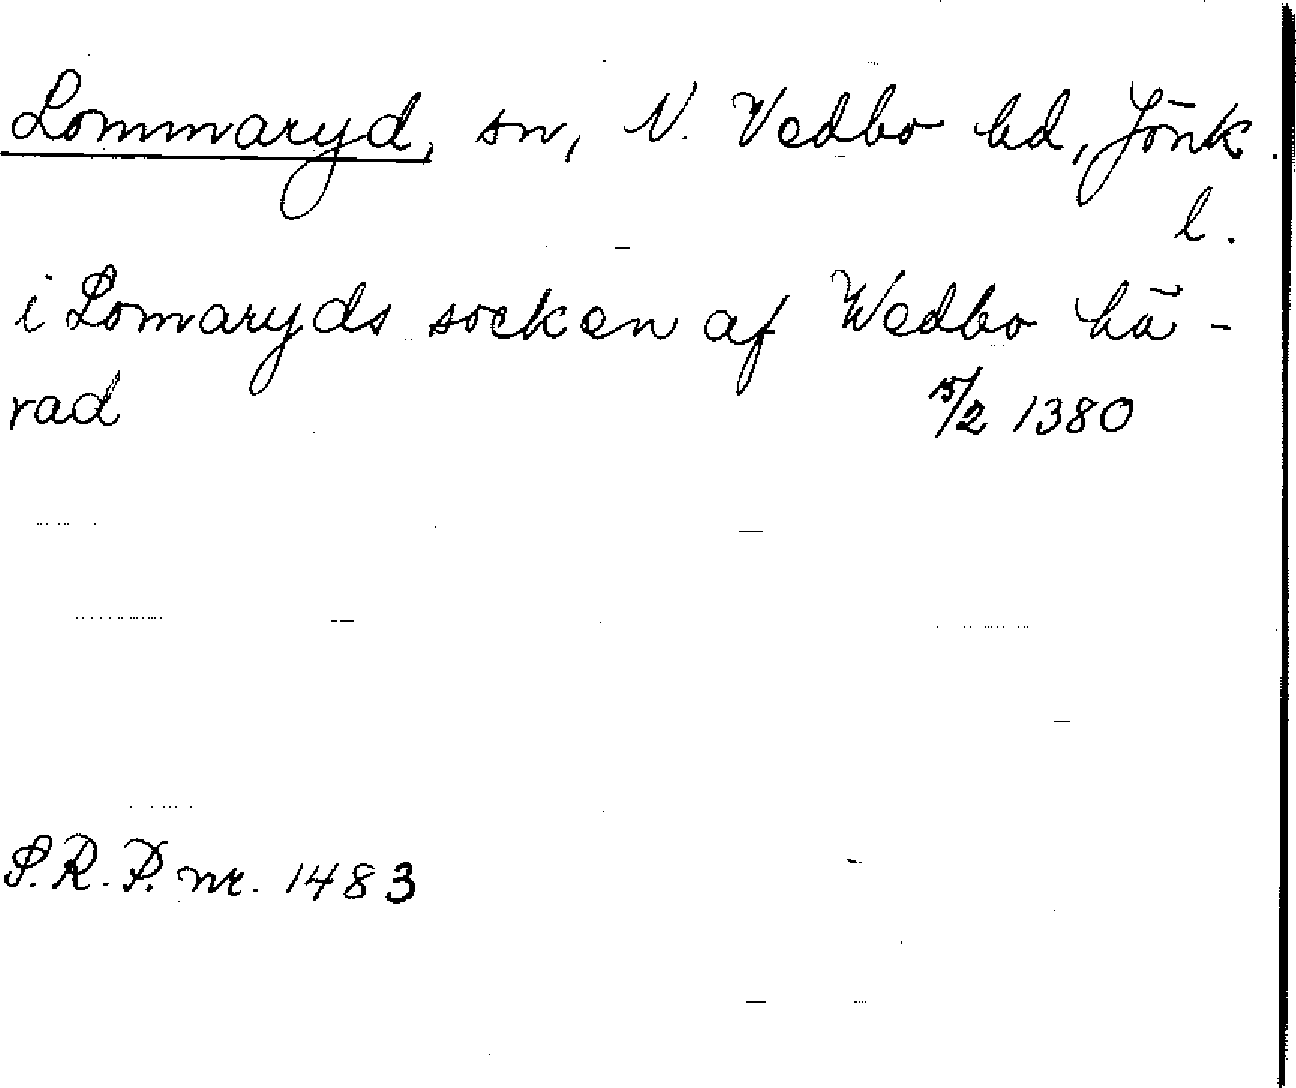 Lommaryd, sn, N. Vedbo hd, Jönk.
l.
i Lomaryds socken af Wedbo hä-
rad 15/2 1380
S.R.P. nr. 1483